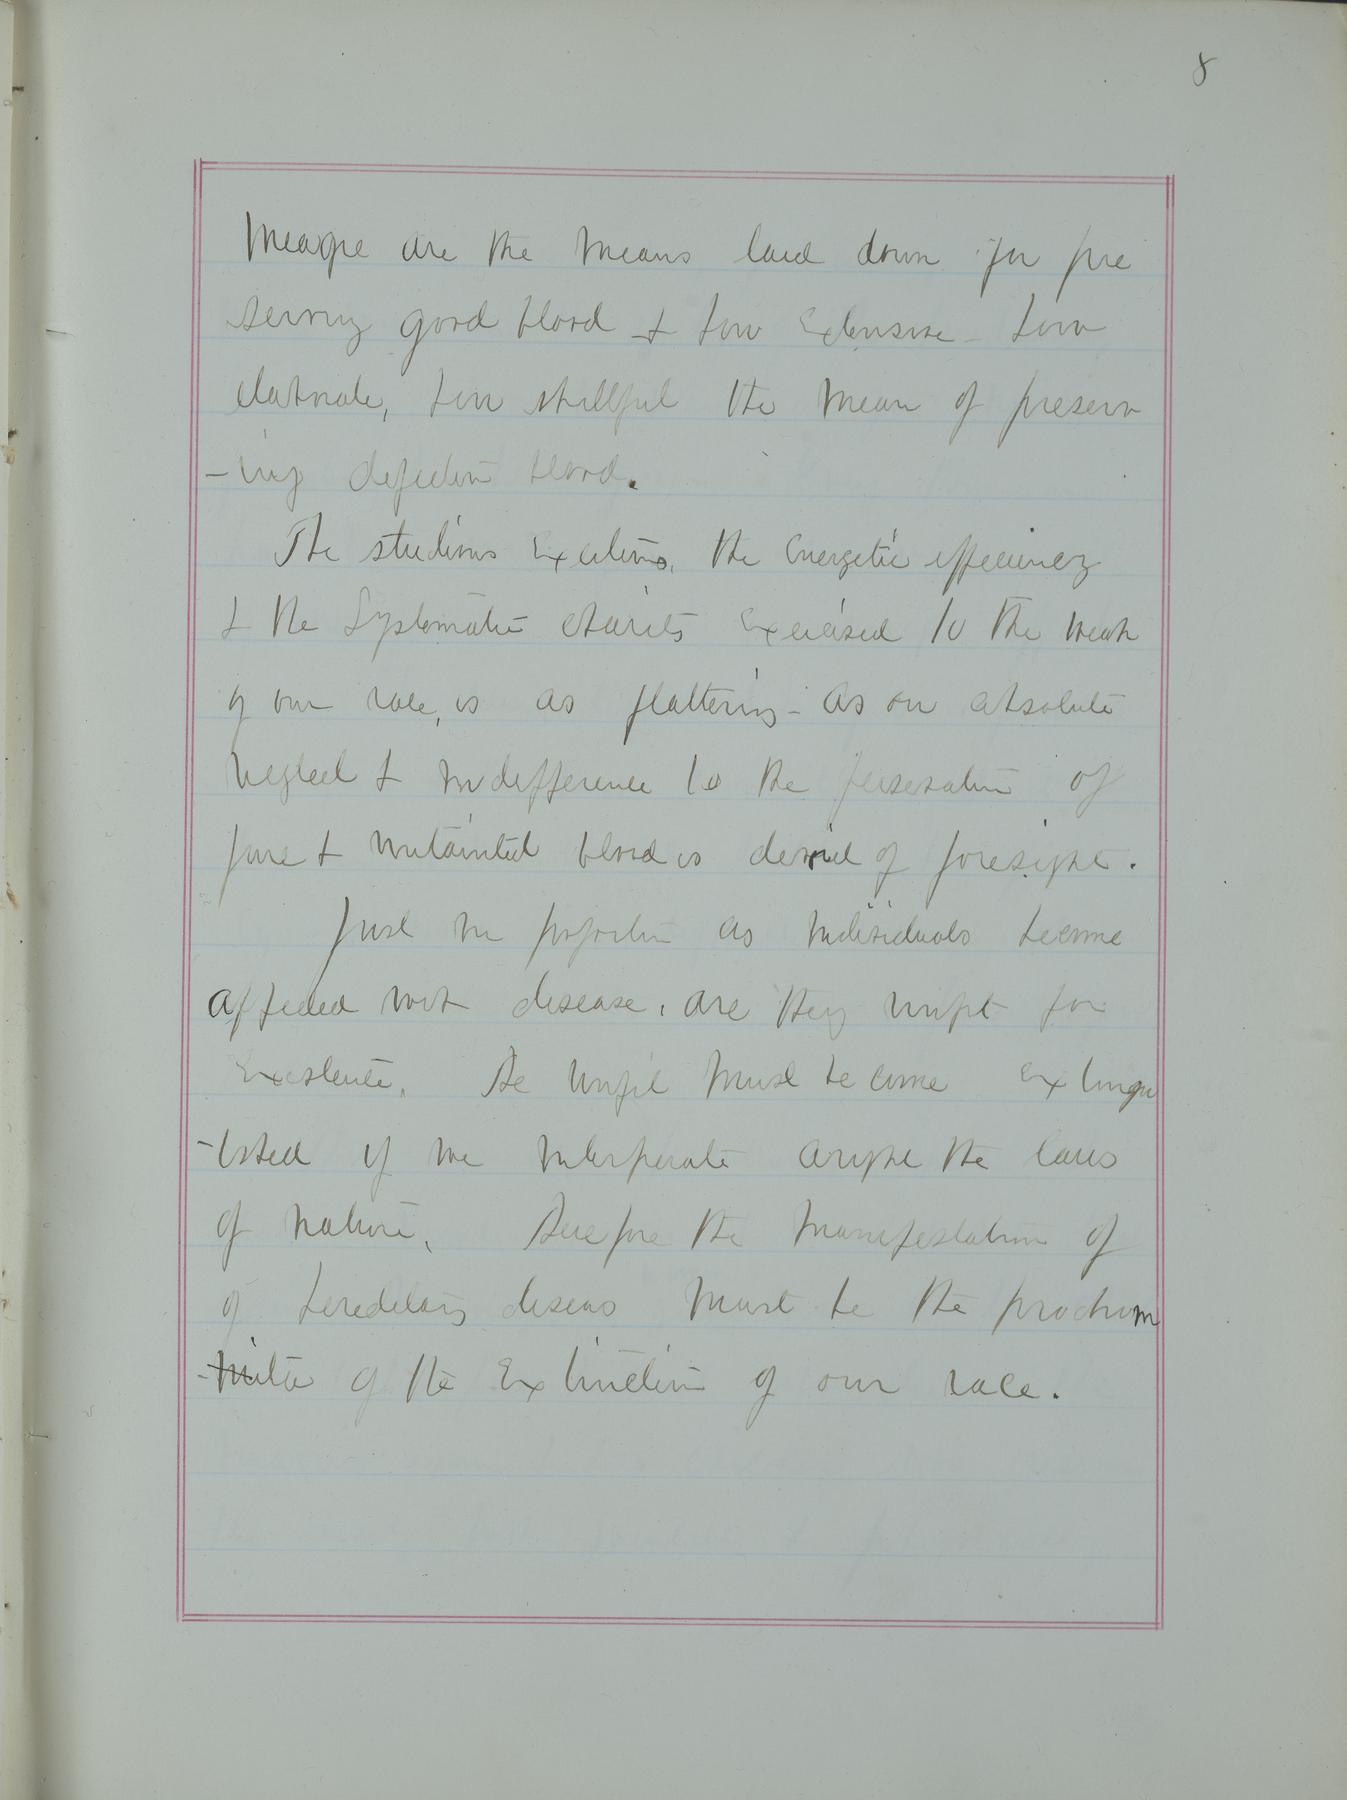 8
Meagre are the means laid down for pre
serving good blood & how extensive - how
elaborate, how skillful the mean of preserv
-ing defective blood.
The studious exertions, the energetic efficiency
& the systematic charity exercised to the weak
of our race, is as flattering - as our absolute
neglect & indifference to the preservation of
pure & untainted blood is devoid of foresight.
Just in proportion as individuals become
affected with disease, are they unfit for
existence. The unfit must become extingu
-ished if we interperate aright the laws
of nature. Therefore the manifestation of
of hereditary diseas must be the prodrom
of the extinction of our race.